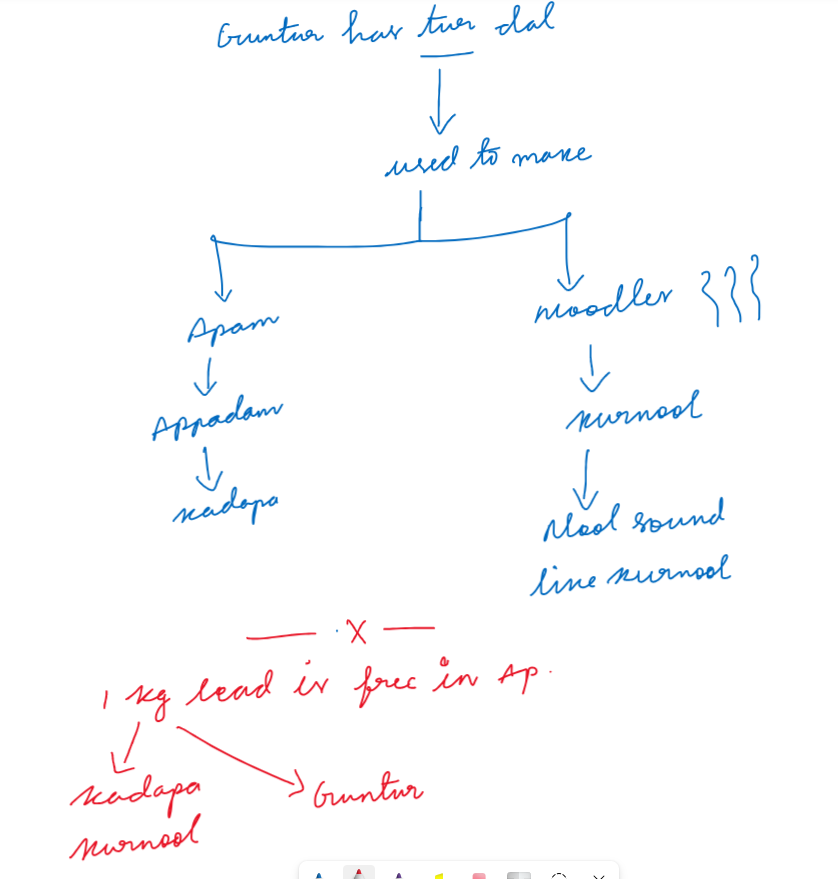 Guntur has tur dal
used to make
Apam
Noodles
Appadam
Kurnool
Kadapa
Nool sound
like Kurnool
X
1 kg lead is free in AP.
Kadapa
Kurnool
Guntur